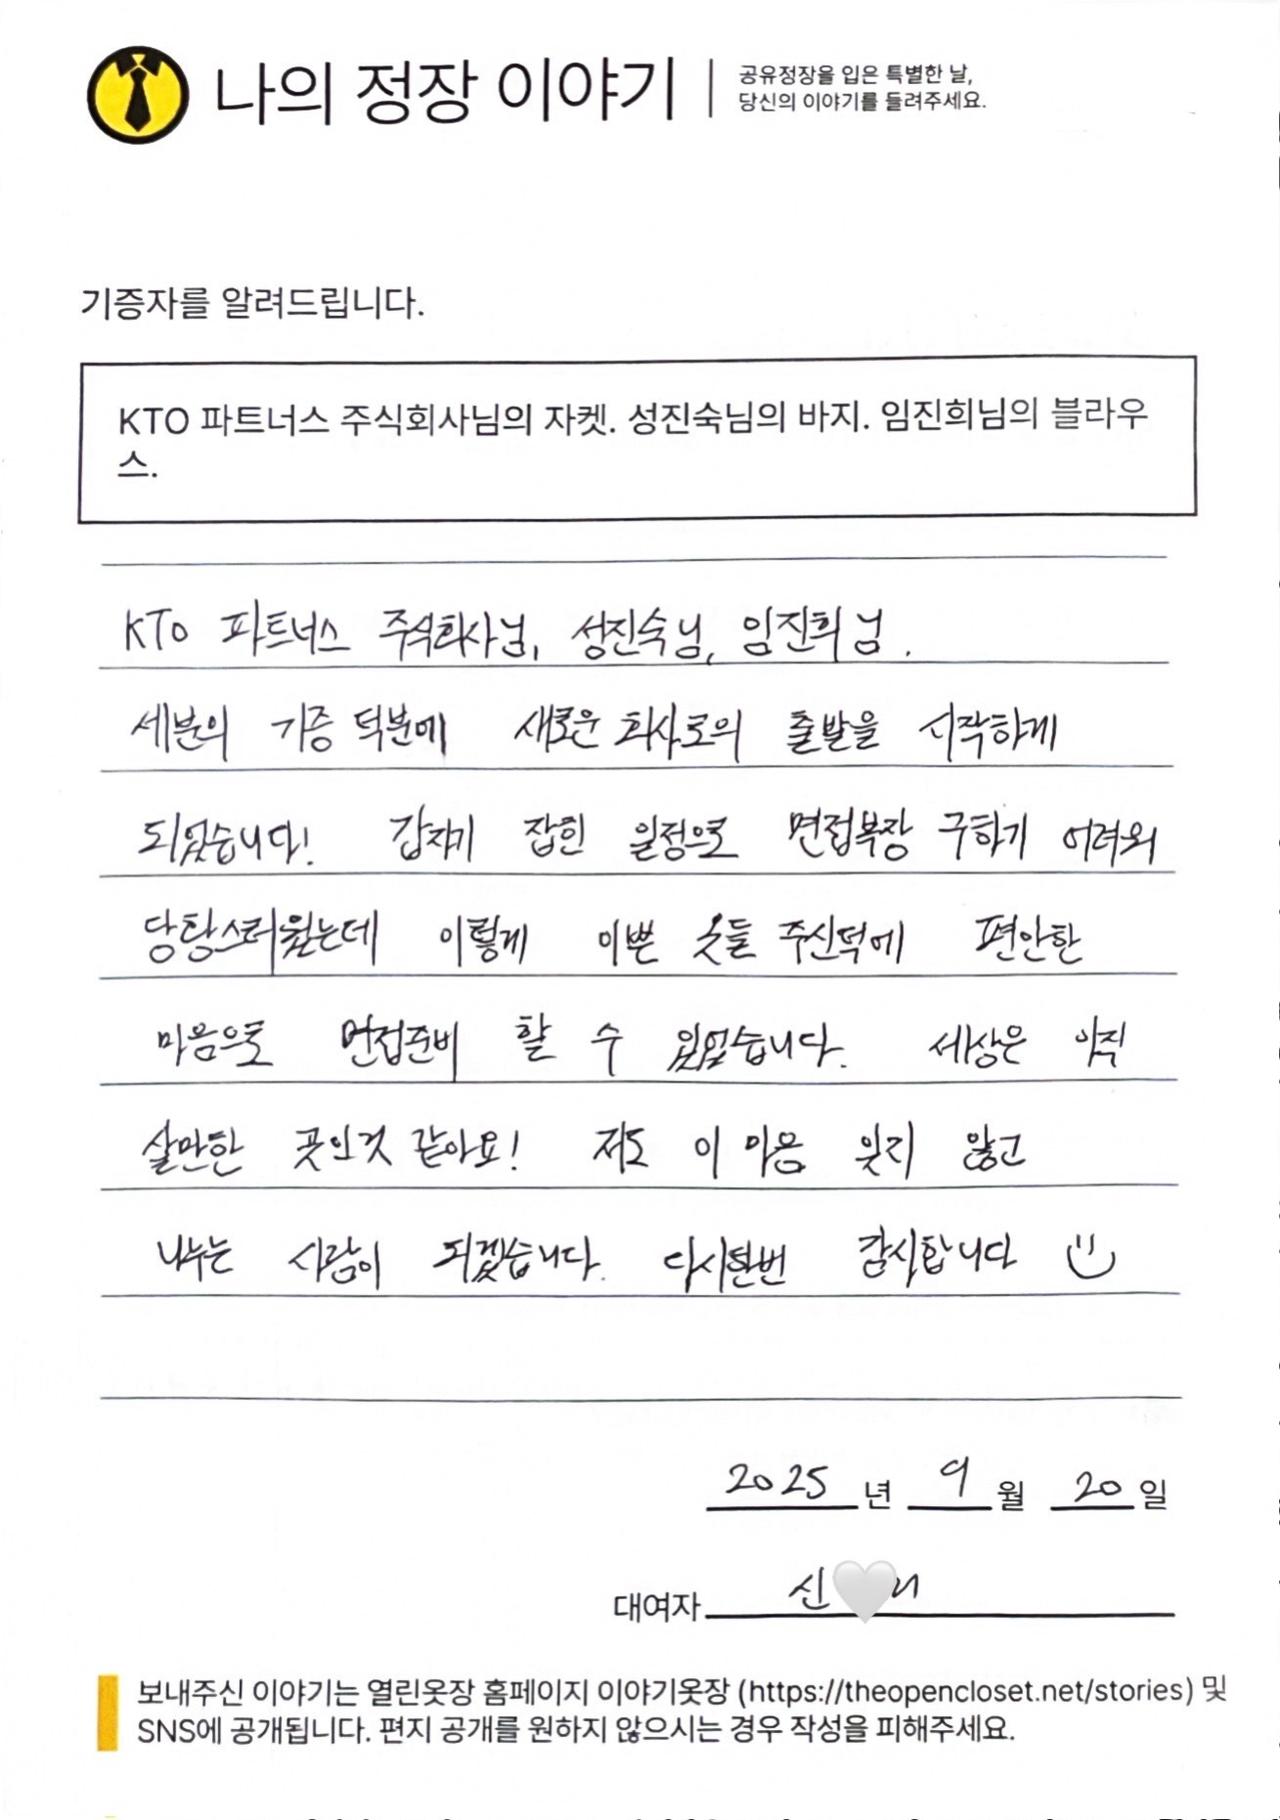 나의 정장 이야기
공유정장을 입은 특별한 날,
당신의 이야기를 들려주세요.
기증자를 알려드립니다.
KTO 파트너스 주식회사님의 자켓. 성진숙님의 바지. 임진희님의 블라우
스.
KTO 파트너스 주식회사님, 성진숙님, 임진희님.
세분의 기증 덕분에 새로운 회사로의 출발을 시작하게
되었습니다! 갑자기 잡힌 일정으로 면접복장 구하기 어려워
당황스러웠는데 이렇게 이쁜 옷들 주신덕에 편안한
마음으로 면접준비 할 수 있었습니다. 세상은 아직
살만한 곳인것 같아요! 저도 이 마음 잊지 않고
나누는 사람이 되겠습니다. 다시한번 감사합니다
2025 년 9 월 20 일
대여자 신
보내주신 이야기는 열린옷장 홈페이지 이야기옷장 (https://theopencloset.net/stories) 및
SNS에 공개됩니다. 편지 공개를 원하지 않으시는 경우 작성을 피해주세요.